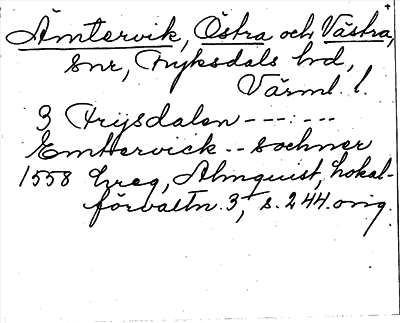 Ämtervik, Östra och Västra,
snr, Fryksdals hd,
Värml. l.
3 Frysdalen --- ---
Emttervick -- sochner
1558 hreg, Almquist, Lokal-
förvaltn. 3, s. 244. orig.